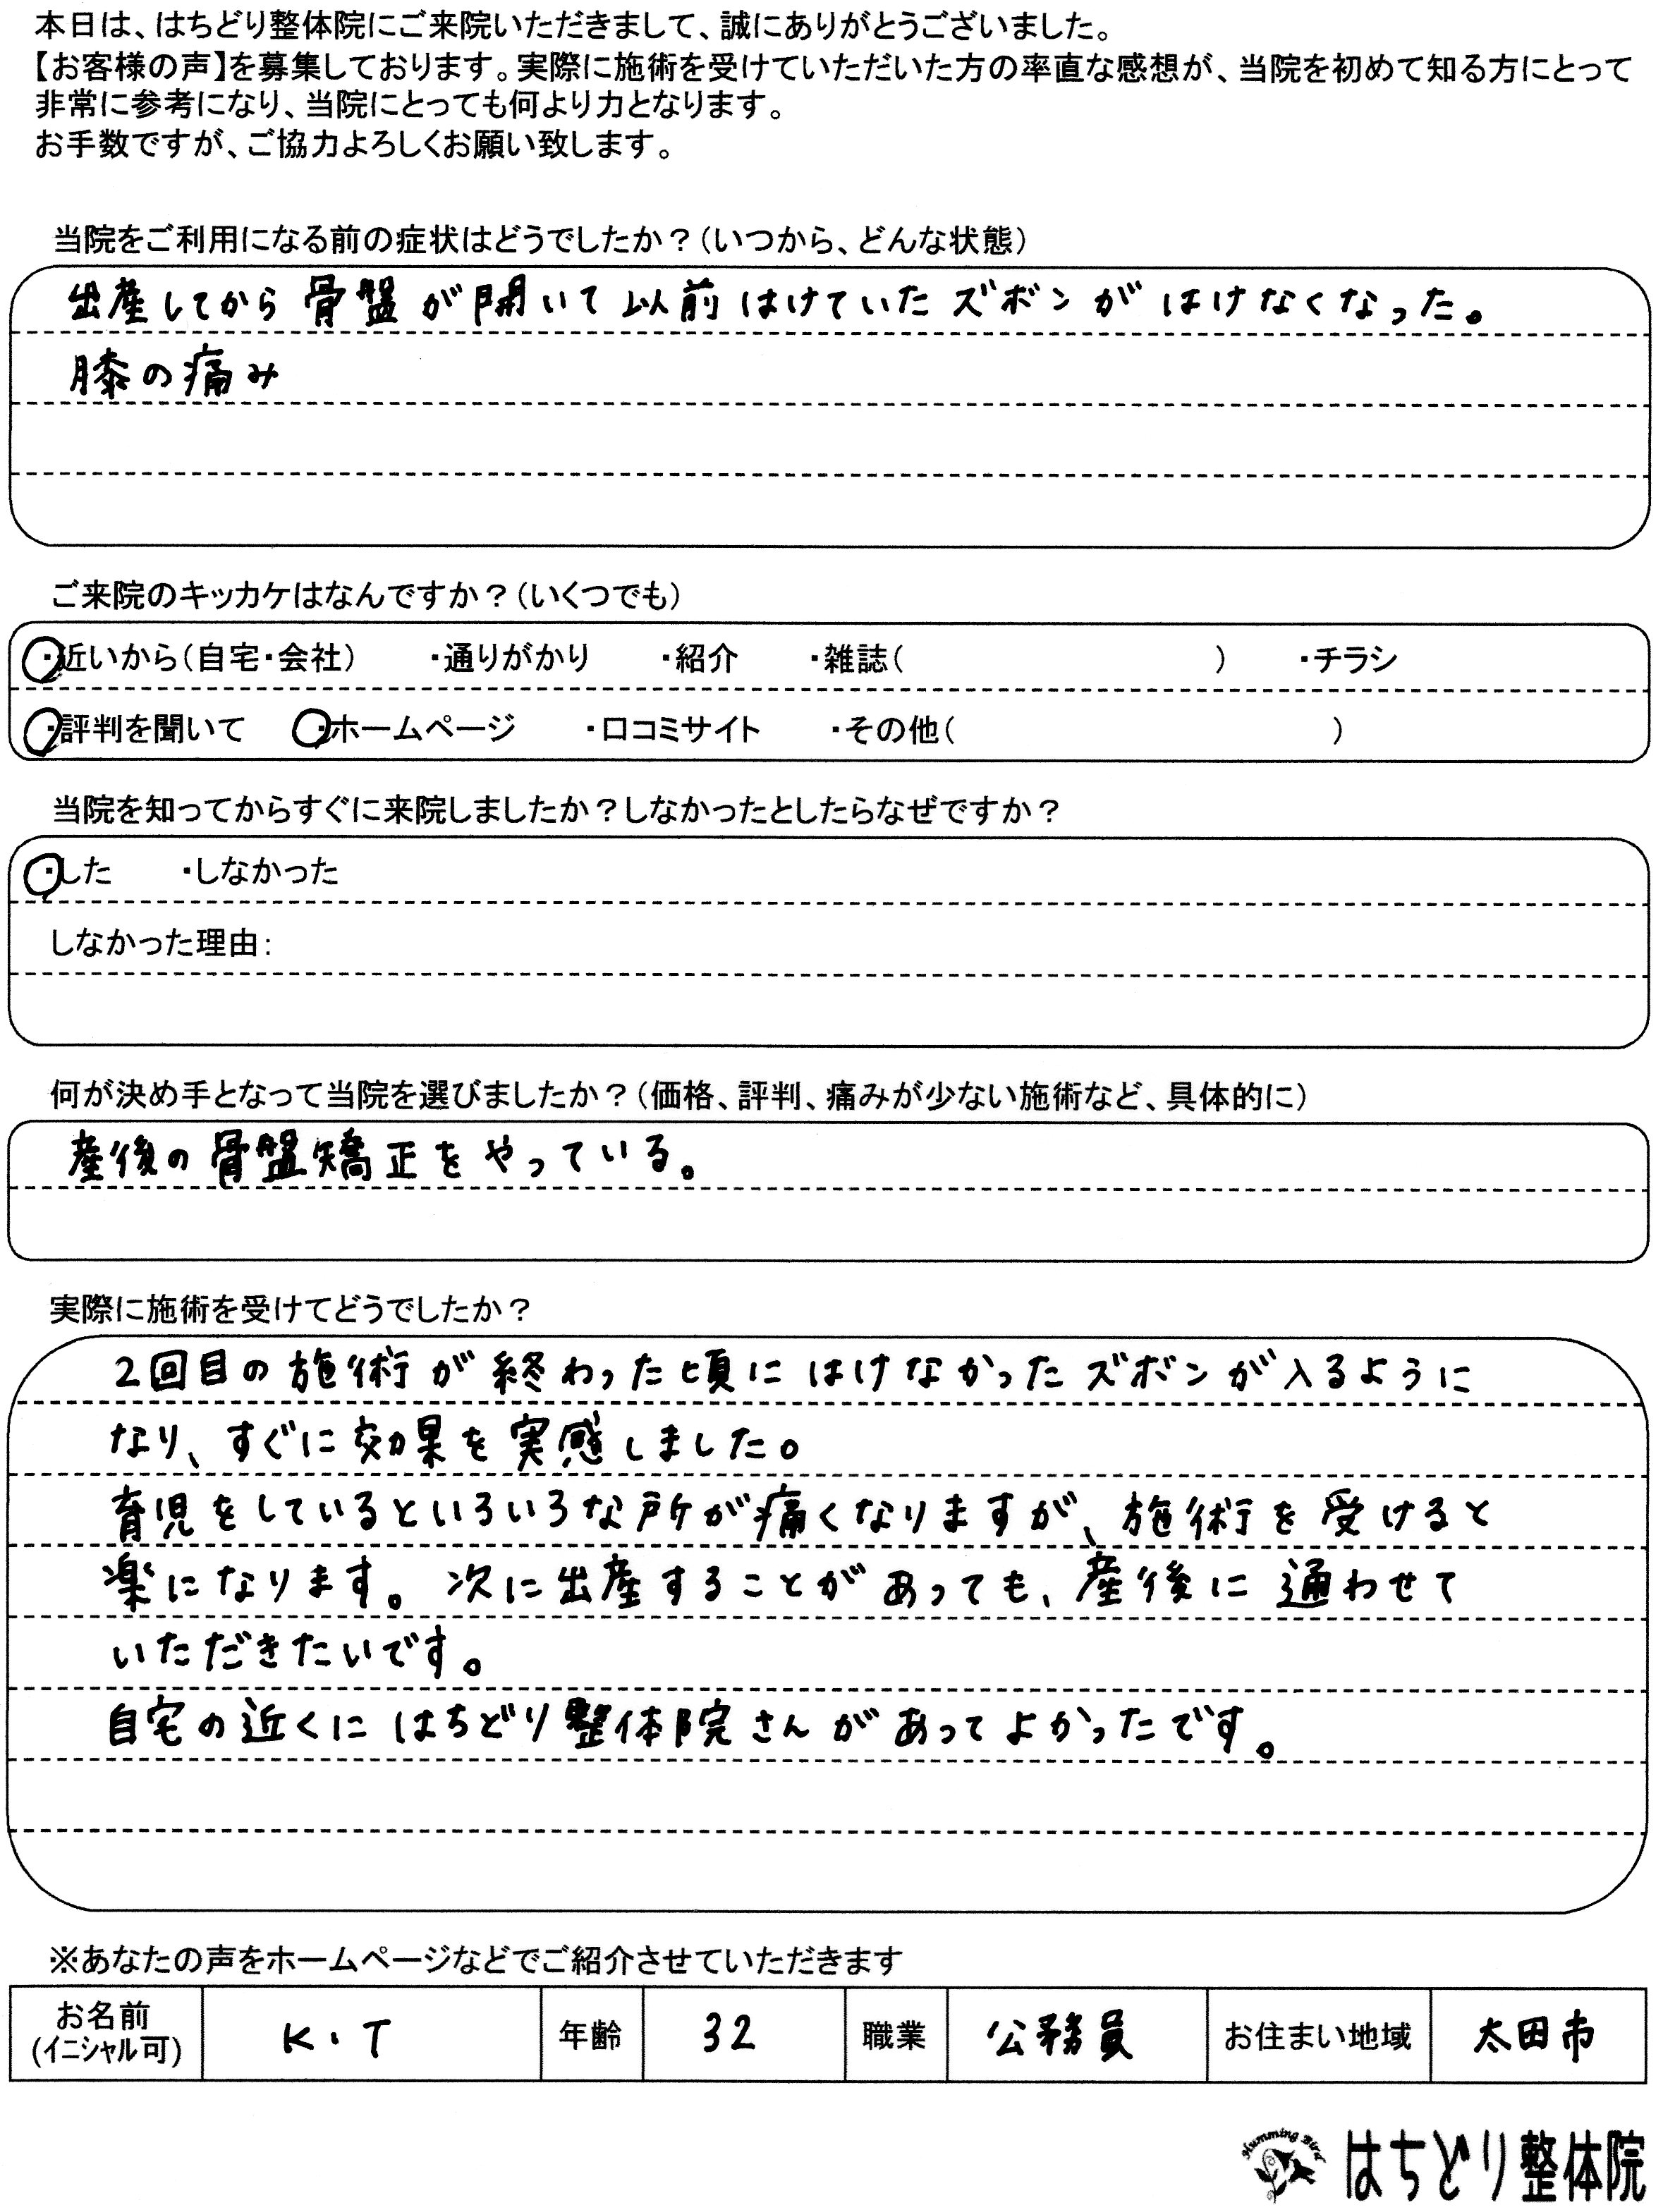 本日は、はちどり整体院にご来院いただきまして、誠にありがとうございました。
【お客様の声】を募集しております。実際に施術を受けていただいた方の率直な感想が、当院を初めて知る方にとって
非常に参考になり、当院にとっても何より力となります。
お手数ですが、ご協力よろしくお願い致します。
当院をご利用になる前の症状はどうでしたか？（いつから、どんな状態）
出産してから骨盤が開いて以前はけていたズボンがはけなくなった。
膝の痛み
ご来院のキッカケはなんですか？（いくつでも）
・近いから（自宅・会社） ・通りがかり ・紹介 ・雑誌（ ） ・チラシ
・評判を聞いて ・ホームページ ・口コミサイト ・その他（ ）
当院を知ってからすぐに来院しましたか？しなかったとしたらなぜですか？
・した ・しなかった
しなかった理由：
何が決め手となって当院を選びましたか？（価格、評判、痛みが少ない施術など、具体的に）
産後の骨盤矯正をやっている。
実際に施術を受けてどうでしたか？
2回目の施術が終わった頃にはけなかったズボンが入るように
なり、すぐに効果を実感しました。
育児をしているといろいろな所が痛くなりますが、施術を受けると
楽になります。次に出産することがあっても、産後に通わせて
いただきたいです。
自宅の近くにはちどり整体院さんがあってよかったです。
※あなたの声をホームページなどでご紹介させていただきます
お名前 (イニシャル可) K・T 年齢 32 職業 公務員 お住まい地域 太田市
Humming Bird はちどり整体院